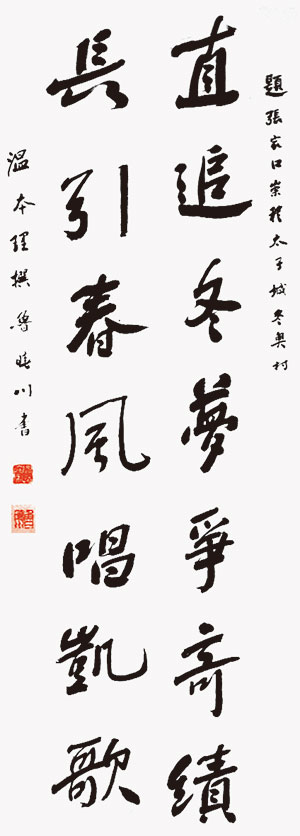 題張家口崇礼太子城冬奥村
直追冬夢爭奇績
長引春風唱凱歌
温本理撰 曉川書